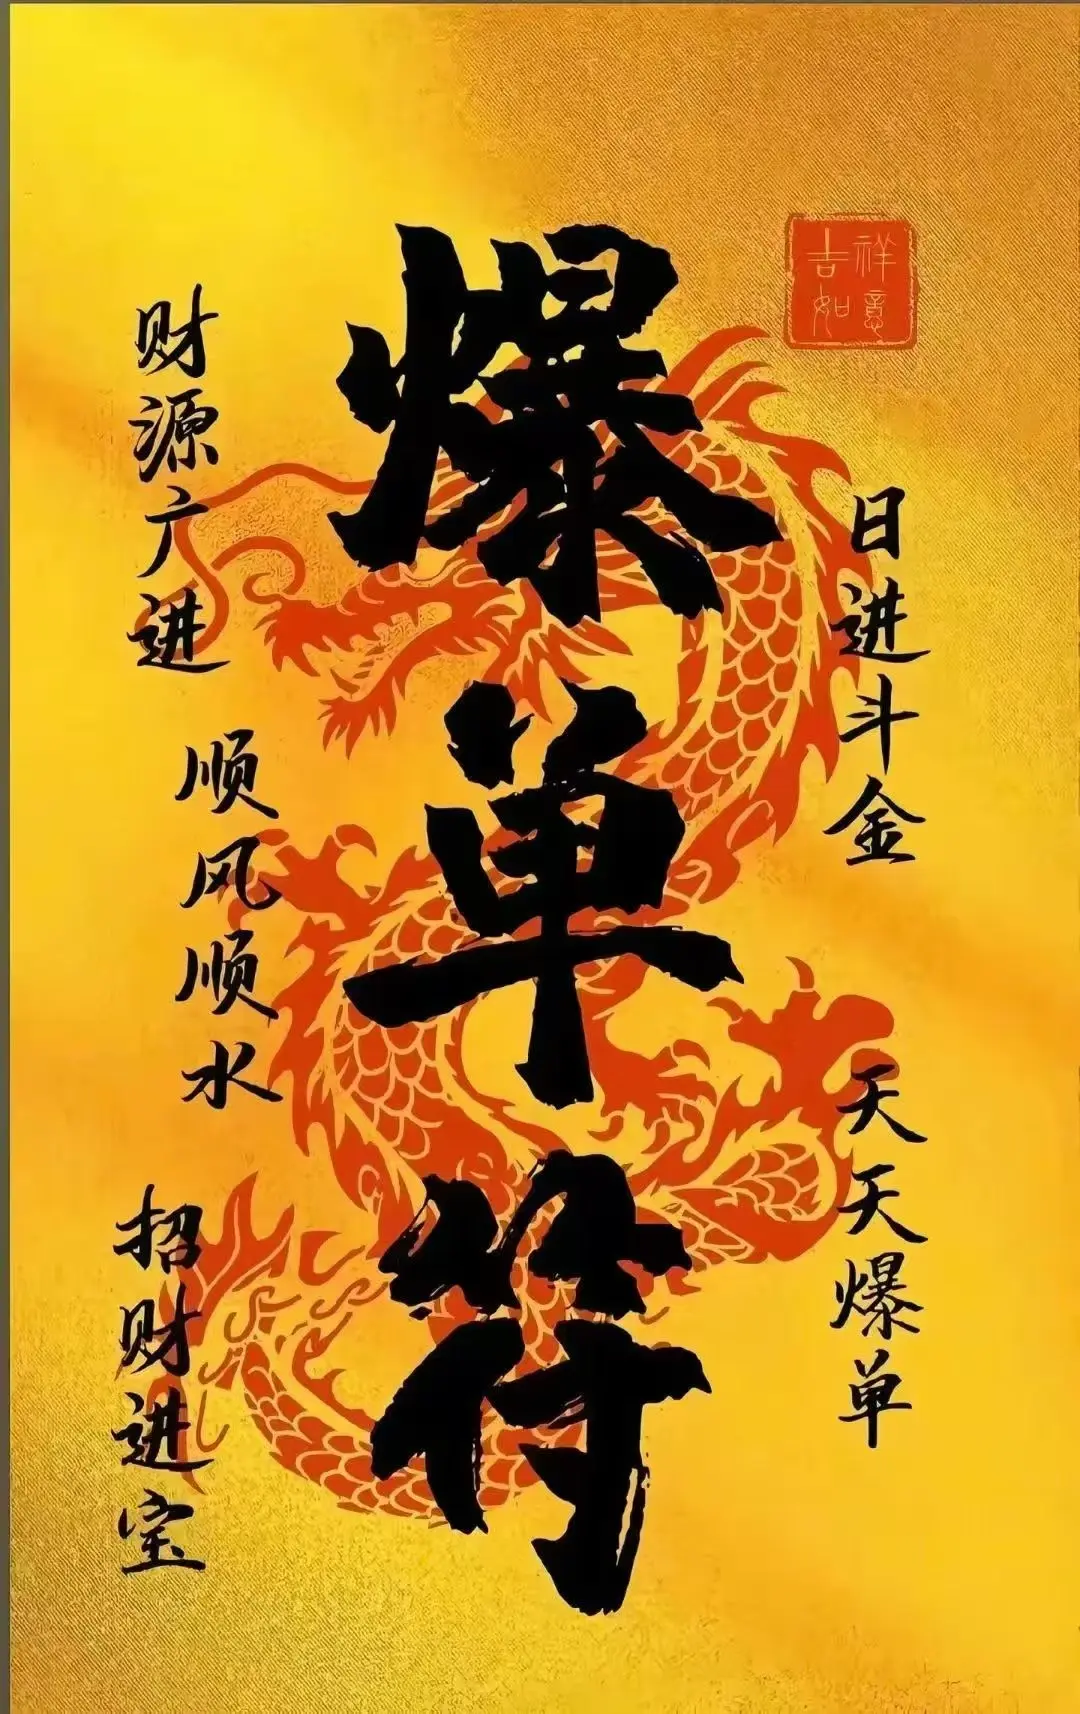 爆单符
吉祥如意
日进斗金
天天爆单
财源广进
顺风顺水
招财进宝